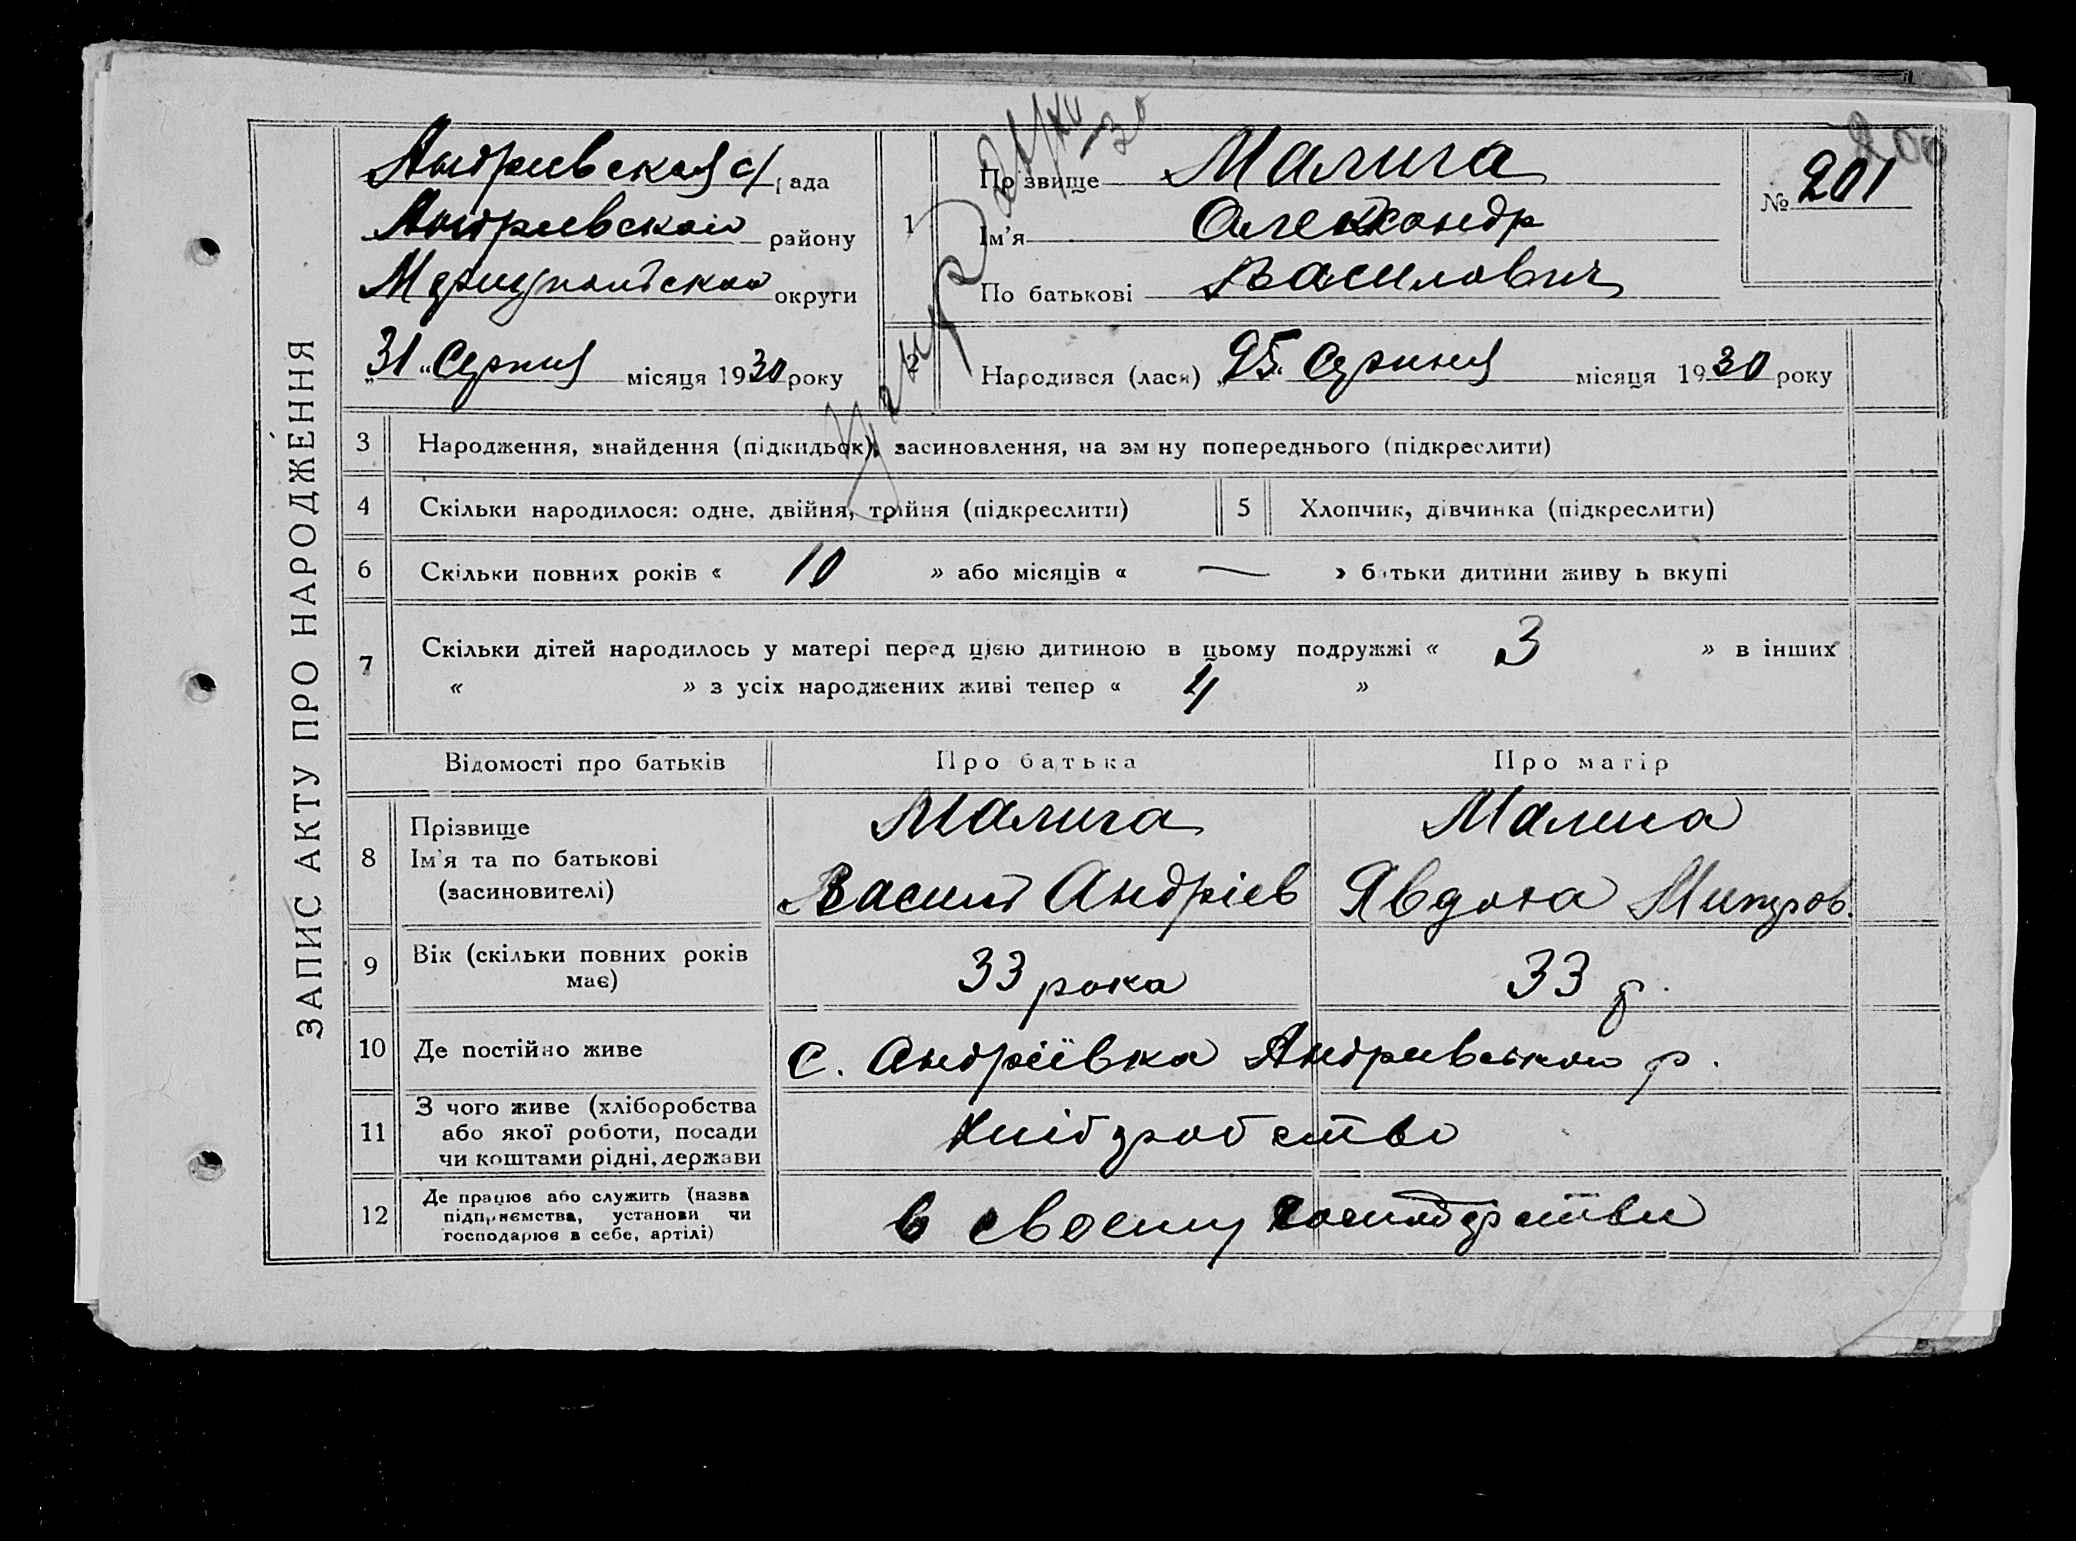 ЗАПИС АКТУ ПРО НАРОДЖЕННЯ
Андриевская с/рада
Андриевского району
Мариупольской округи
„31“ Серпня місяця 1930 року
1
Прізвище Малига
Ім'я Олександр
По батькові Василович
№ 201
Умер
2 Народився (лася) „25“ Серпня місяця 1930 року
3 Народження, знайдення (підкидьок), засиновлення, на зміну попереднього (підкреслити)
4 Скільки народилося: одне, двійня, трійня (підкреслити)
5 Хлопчик, дівчинка (підкреслити)
6 Скільки повних років « 10 » або місяців « — » батьки дитини живуть вкупі
7 Скільки дітей народилось у матері перед цією дитиною в цьому подружжі « 3 » в інших
« » з усіх народжених живі тепер « 4 »
Відомості про батьків Про батька Про матір
8 Прізвище
Ім'я та по батькові
(засиновителі)
Малига
Василь Андріев
Малига
Явдоха
9 Вік (скільки повних років
має)
33 рока 33 р.
10 Де постійно живе с. Андріївка Андриевського р.
11 З чого живе (хліборобства
або якої роботи, посади
чи коштами рідні, держави
Хліборобство
12 Де працює або служить (назва
підприємства, установи чи
господарює в себе, артілі)
в своему господарстви